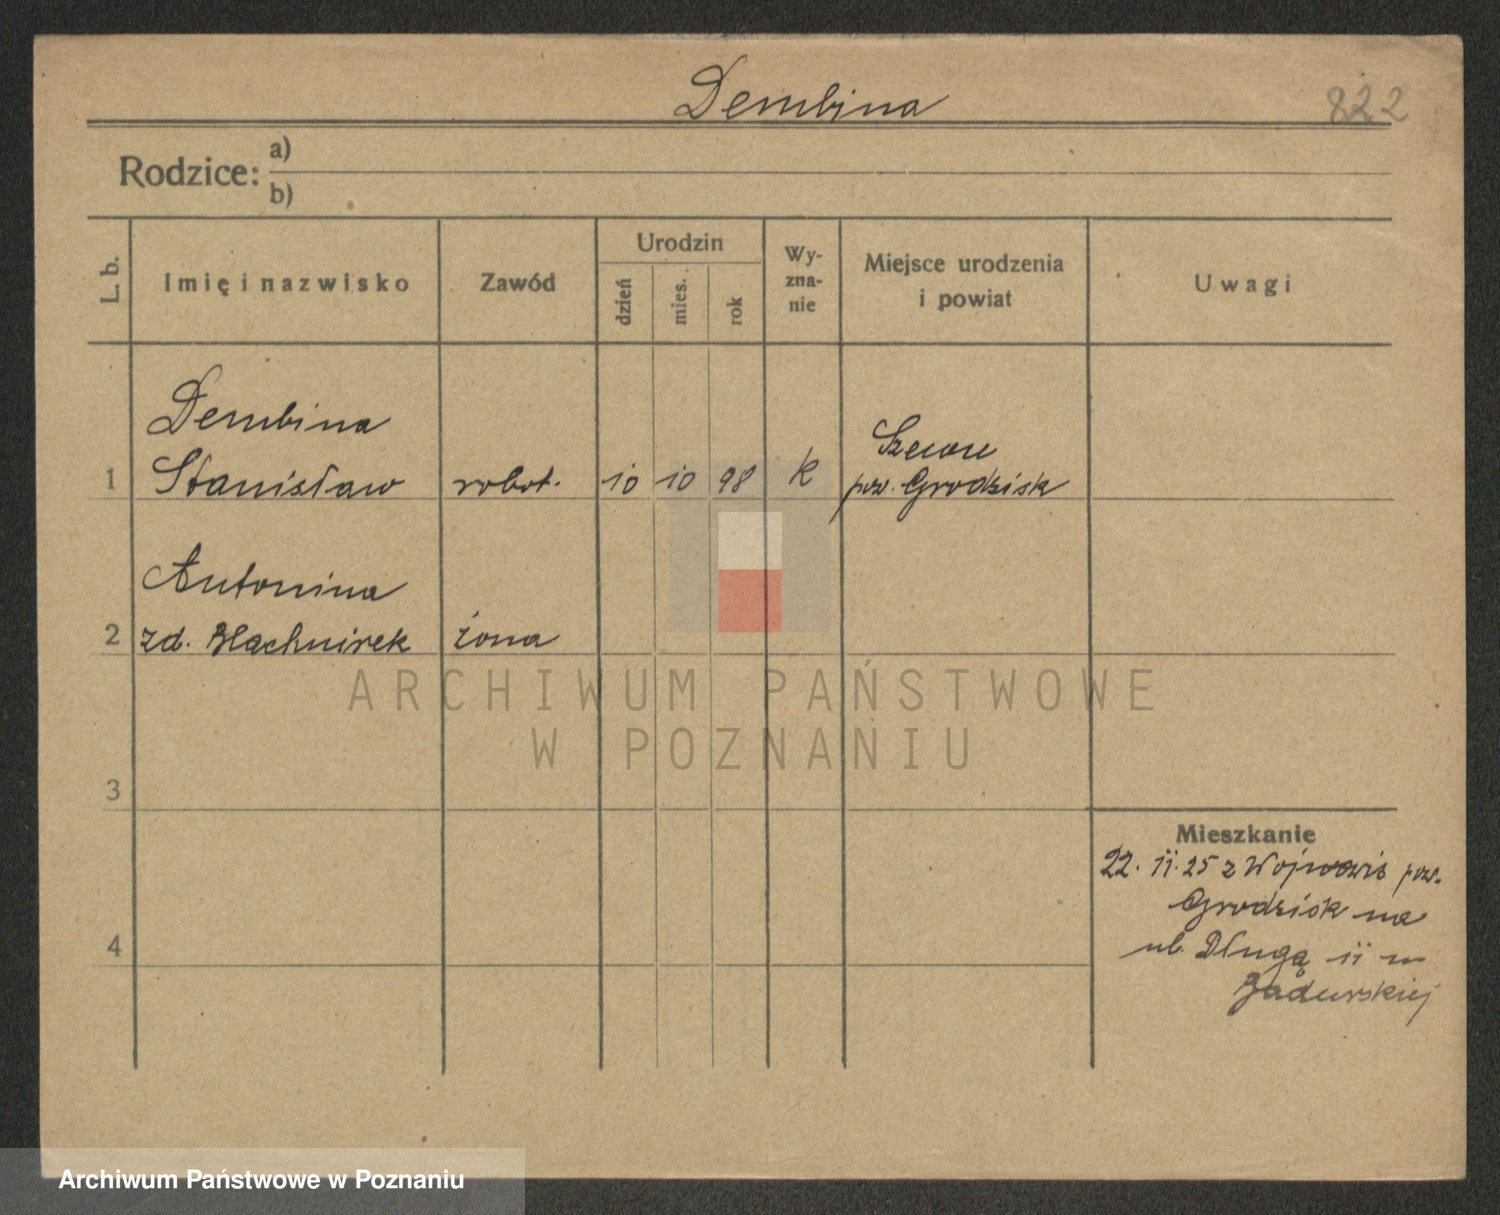 Dembina
822
Rodzice: a)
b)
L. b.
Imię i nazwisko
Zawód
Urodzin
dzień
mies.
rok
Wy-
zna-
nie
Miejsce urodzenia
i powiat
Uwagi
Dembina
1 Stanisław robot. 10 10 98 k
Szewce
pow. Grodzisk
Antonina
2 zd. Blachnirek żona
3
4
Mieszkanie
22. 11. 25 z pow.
Grodzisk na
ul. Długą 11 u
Badurskiej
ARCHIWUM PAŃSTWOWE
W POZNANIU
Archiwum Państwowe w Poznaniu